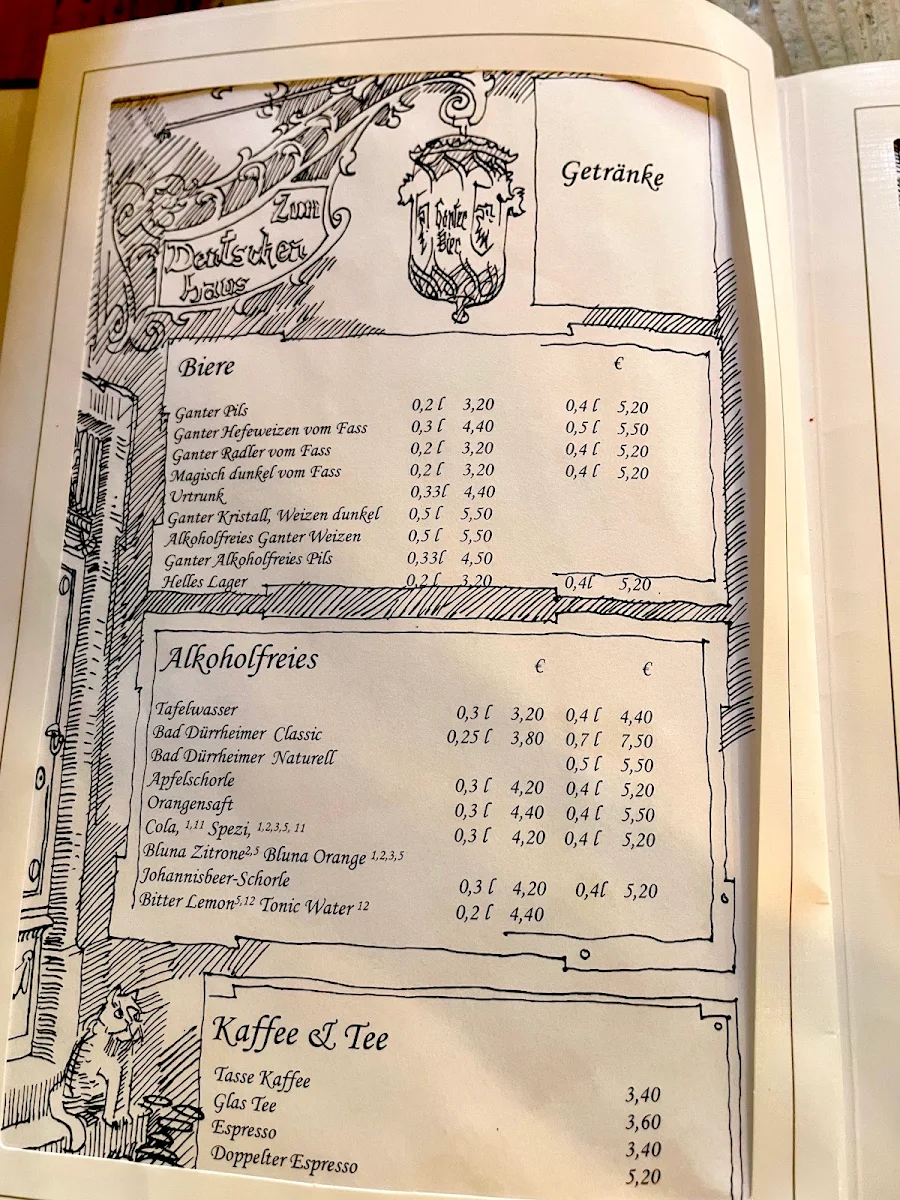 Zum
Deutschen
haus
Ganter
Bier
Getränke
Biere €
Ganter Pils 0,2 l 3,20 0,4 l 5,20
Ganter Hefeweizen vom Fass 0,3 l 4,40 0,5 l 5,50
Ganter Radler vom Fass 0,2 l 3,20 0,4 l 5,20
Magisch dunkel vom Fass 0,2 l 3,20 0,4 l 5,20
Urtrunk 0,33l 4,40
Ganter Kristall, Weizen dunkel 0,5 l 5,50
Alkoholfreies Ganter Weizen 0,5 l 5,50
Ganter Alkoholfreies Pils 0,33l 4,50
Helles Lager 0,2 l 3,20 0,4l 5,20
Alkoholfreies € €
Tafelwasser 0,3 l 3,20 0,4 l 4,40
Bad Dürrheimer Classic 0,25 l 3,80 0,7 l 7,50
Bad Dürrheimer Naturell 0,5 l 5,50
Apfelschorle 0,3 l 4,20 0,4 l 5,20
Orangensaft 0,3 l 4,40 0,4 l 5,50
Cola, 1,11 Spezi, 1,2,3,5, 11 0,3 l 4,20 0,4 l 5,20
Bluna Zitrone2,5 Bluna Orange 1,2,3,5
Johannisbeer-Schorle 0,3 l 4,20 0,4l 5,20
Bitter Lemon5,12 Tonic Water 12 0,2 l 4,40
Kaffee & Tee
Tasse Kaffee 3,40
Glas Tee 3,60
Espresso 3,40
Doppelter Espresso 5,20